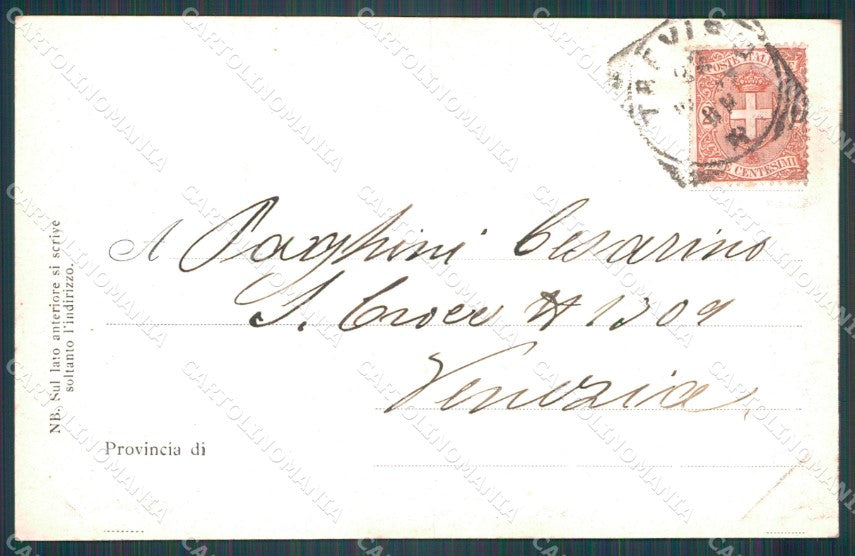 TREVISO
POSTE ITALIANE
DUE CENTESIMI
A Paghini Cesarino
S. Croce N 1309
Venezia
Provincia di
NB. Sul lato anteriore si scrive
soltanto l'indirizzo.
CARTOLINOMANIA